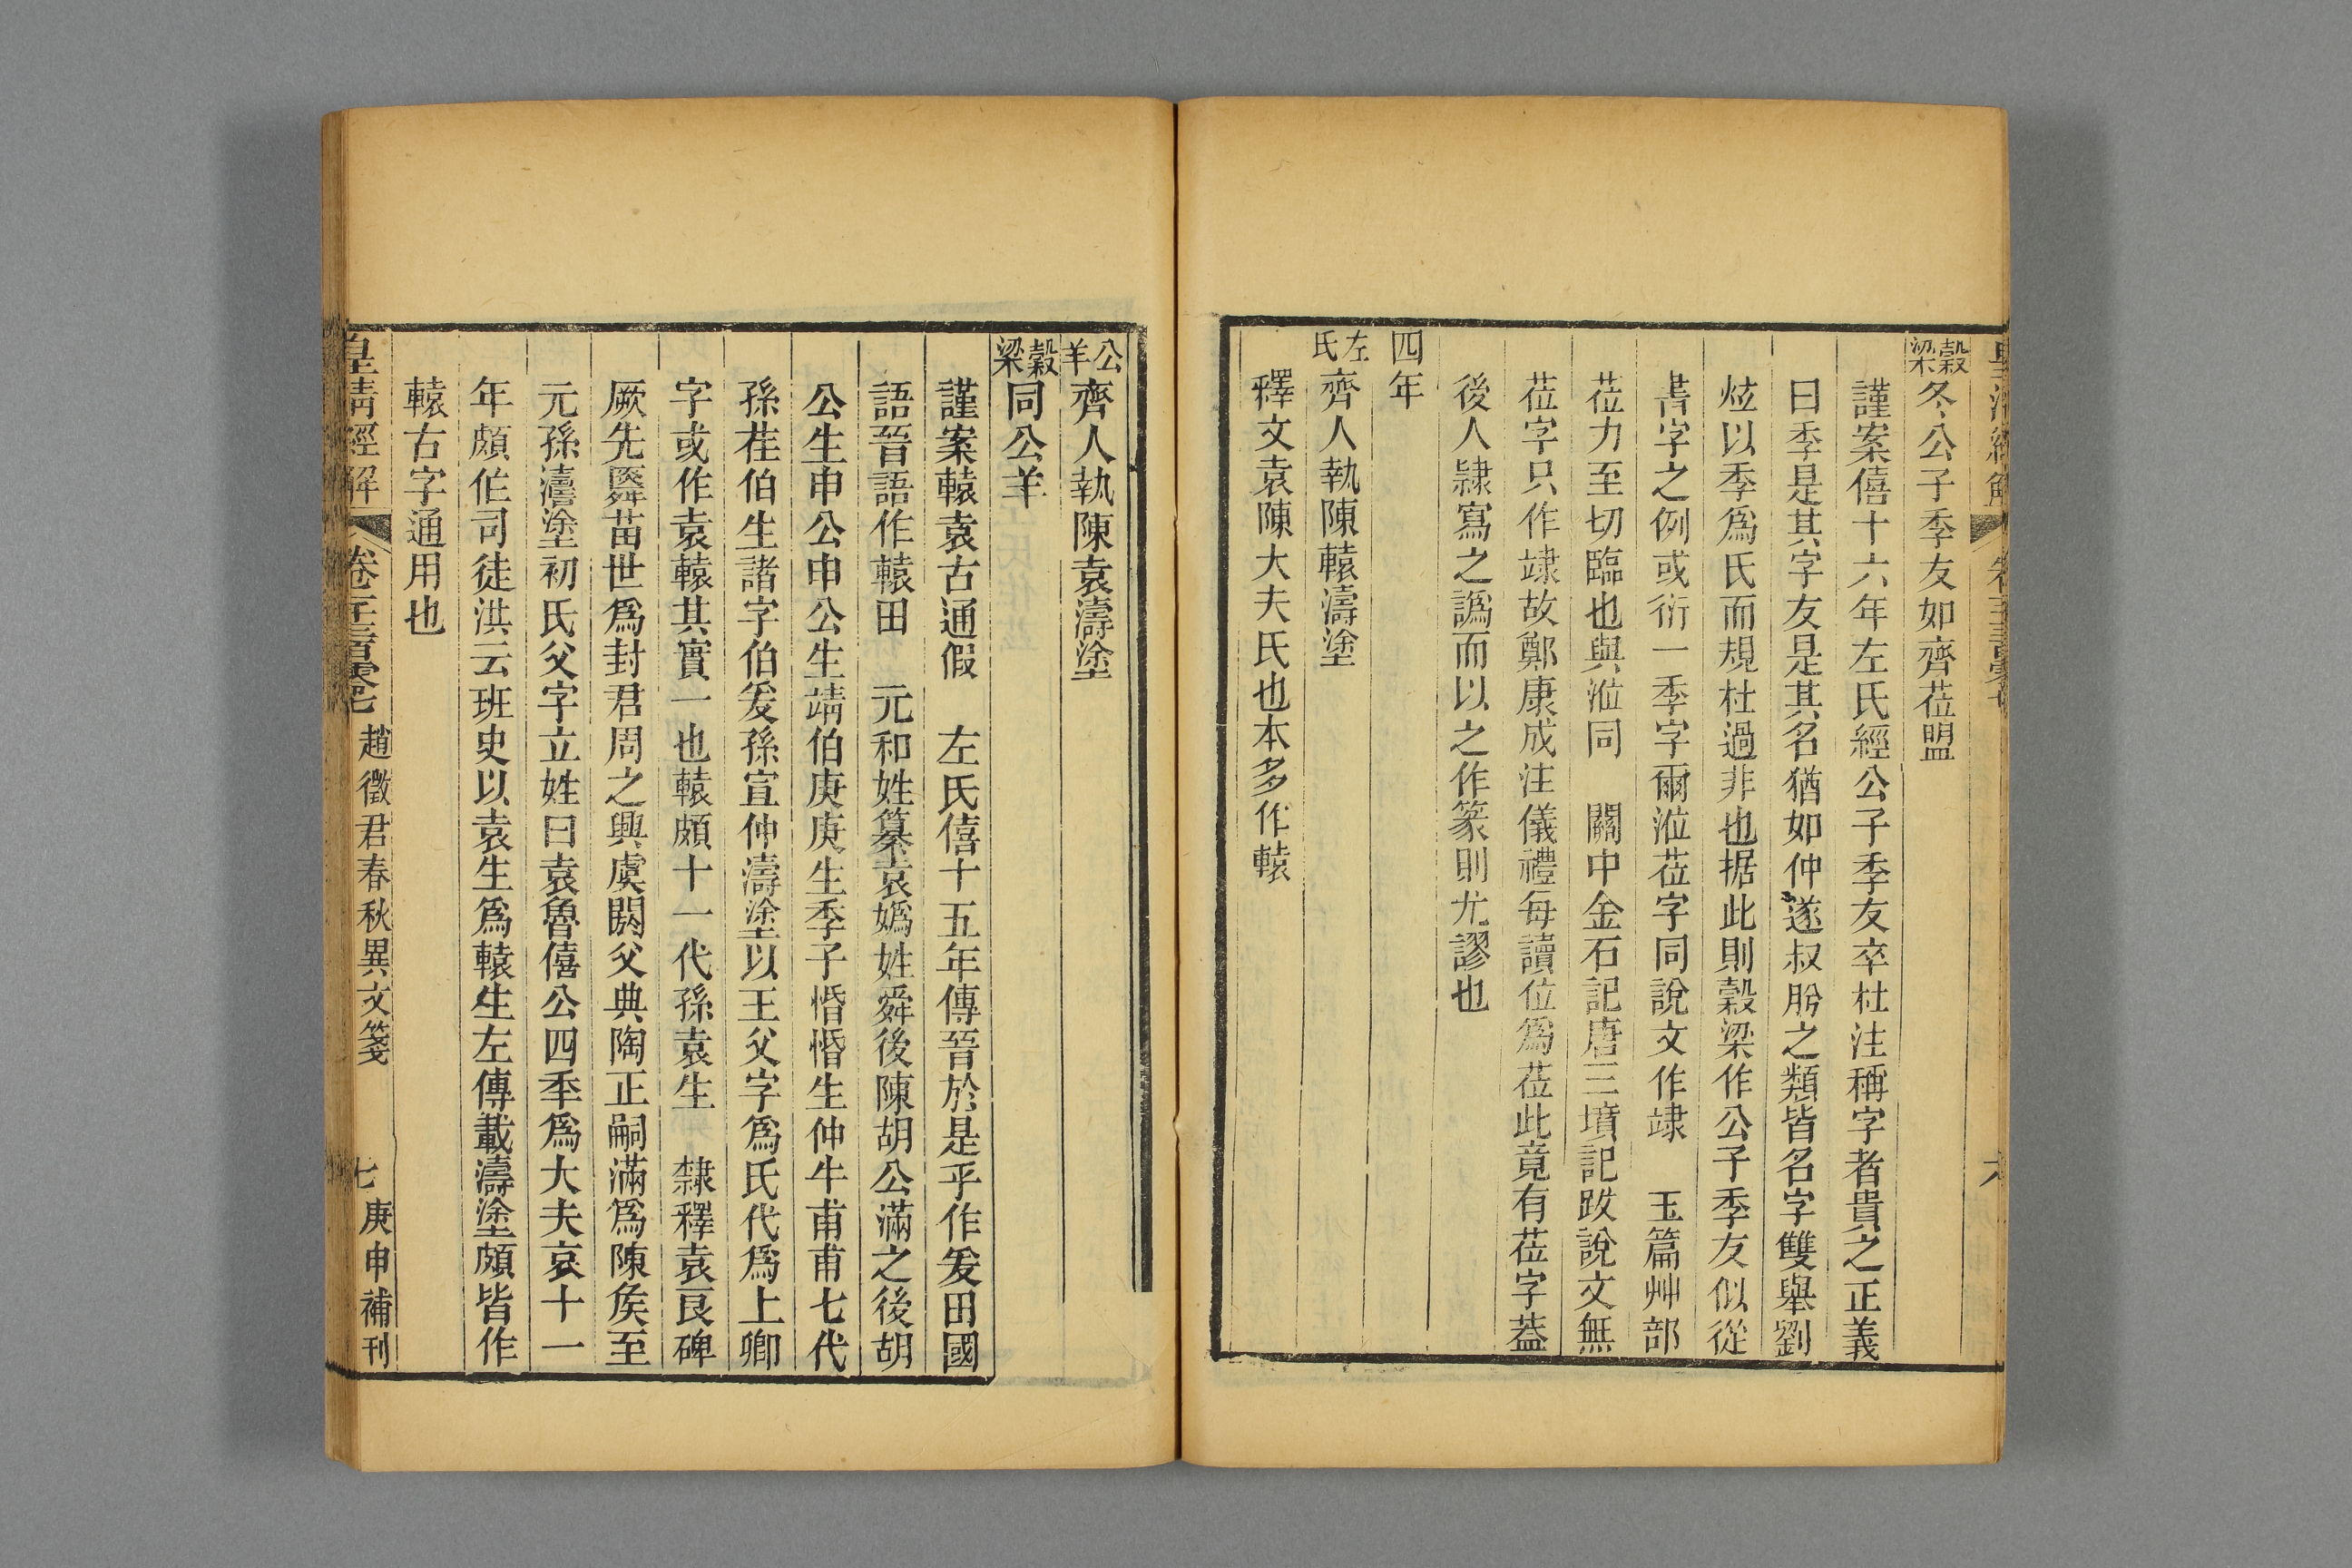 穀梁冬公子季友如齊莅盟
謹案僖十六年左氏經公子季友卒杜注稱字者貴之正義
曰季是其字友是其名猶如仲遂叔肸之類皆名字雙舉劉
炫以季爲氏而規杜過非也据此則穀梁作公子季友似從
書字之例或衍一季字爾涖莅字同說文作竦 玉篇艸部
莅力至切臨也與涖同 關中金石記唐三墳記跋說文無
莅字只作竦故鄭康成注儀禮每讀位爲莅此竟有莅字葢
後人隷寫之譌而以之作篆則尤謬也
四年
左氏齊人執陳轅濤塗
釋文袁陳大夫氏也本多作轅
公羊齊人執陳袁濤塗
穀梁同公羊
謹案轅袁古通假 左氏僖十五年傳晉於是乎作爰田國
語晉語作轅田 元和姓纂袁嬀姓舜後陳胡公滿之後胡
公生申公申公生靖伯庚庚生季子惛惛生仲牛甫甫七代
孫莊伯生諸字伯爰孫宣仲濤塗以王父字爲氏代爲上卿
字或作袁轅其實一也轅頗十一代孫袁生 隸釋袁良碑
厥先舜苗世爲封君周之興虞閼父典陶正嗣滿爲陳矦至
元孫濤塗初氏父字立姓曰袁魯僖公四秊爲大夫哀十一
年頗作司徒洪云班史以袁生爲轅生左傳載濤塗頗皆作
轅右字通用也
皇淸經解 趙徵君春秋異文箋 七 庚申補刊